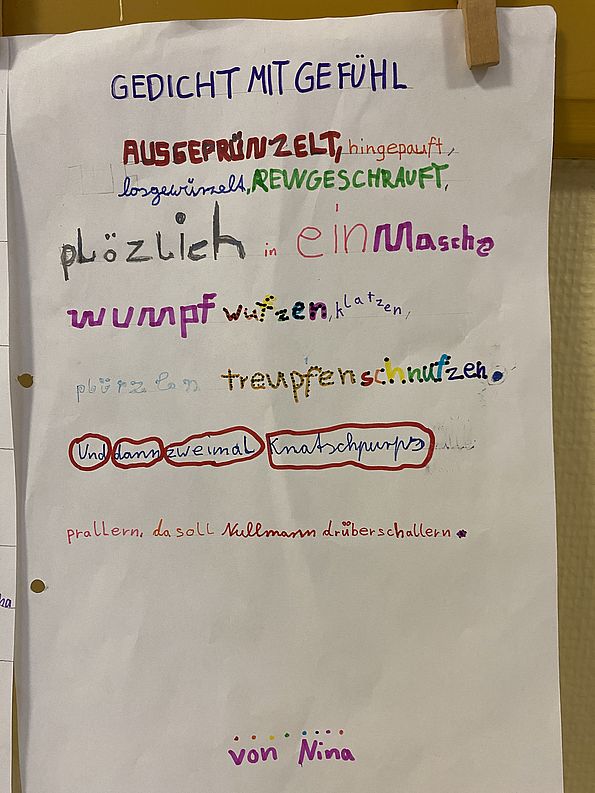 GEDICHT MIT GEFÜHL
AUSGEPRÜNZELT, hingepauft,
losgewürzelt, REINGESCHRAUFT,
plözlich in ein Masche
wumpf wutzen, klatzen,
plürzlen treupfen schnutzen.
Und dann zweimal Knatschpurps
prallern, da soll Nullmann drüberschallern.
von Nina